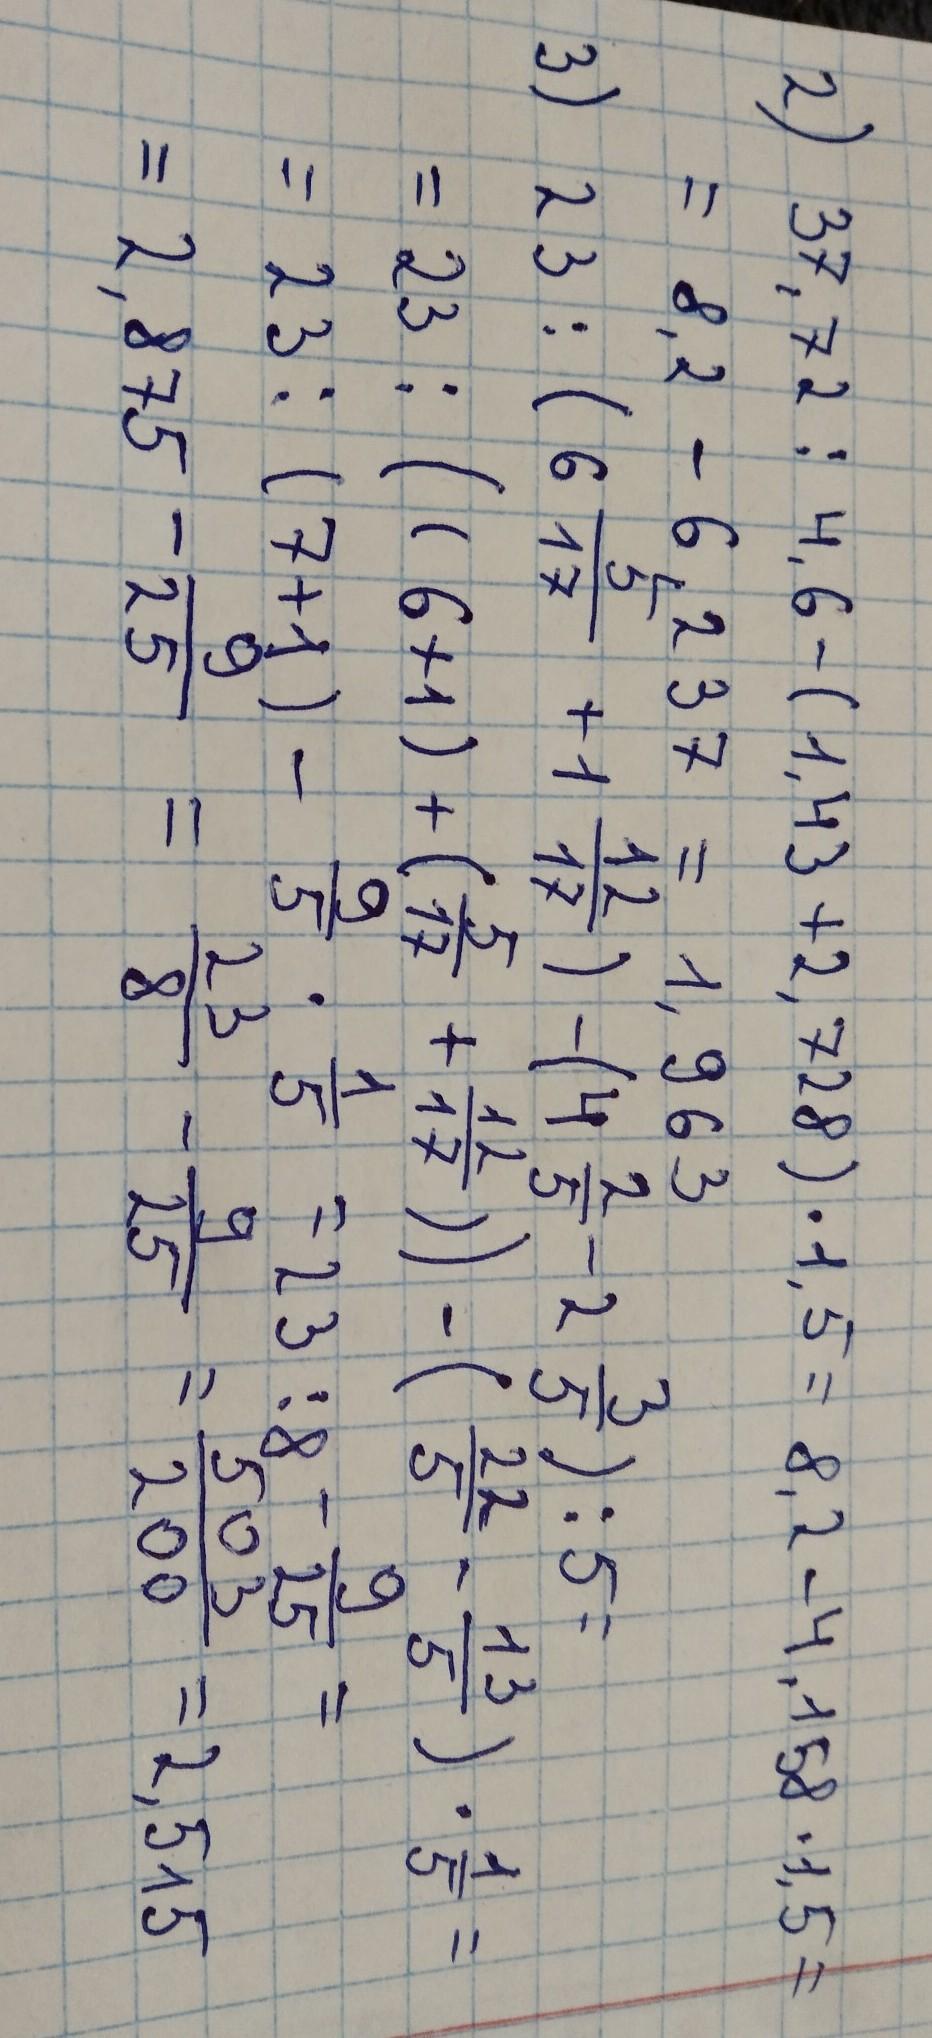 2) 37,72 : 4,6 - (1,43 + 2,728) · 1,5 = 8,2 - 4,158 · 1,5 =
= 8,2 - 6,237 = 1,963
3) 23 : (6 5/17 + 1 12/17) - (4 2/5 - 2 3/5) : 5 =
= 23 : ((6+1) + (5/17 + 12/17)) - (22/5 - 13/5) · 1/5 =
= 23 : (7+1) - 9/5 · 1/5 = 23 : 8 - 9/25 =
= 2,875 - 9/25 = 23/8 - 9/25 = 503/200 = 2,515